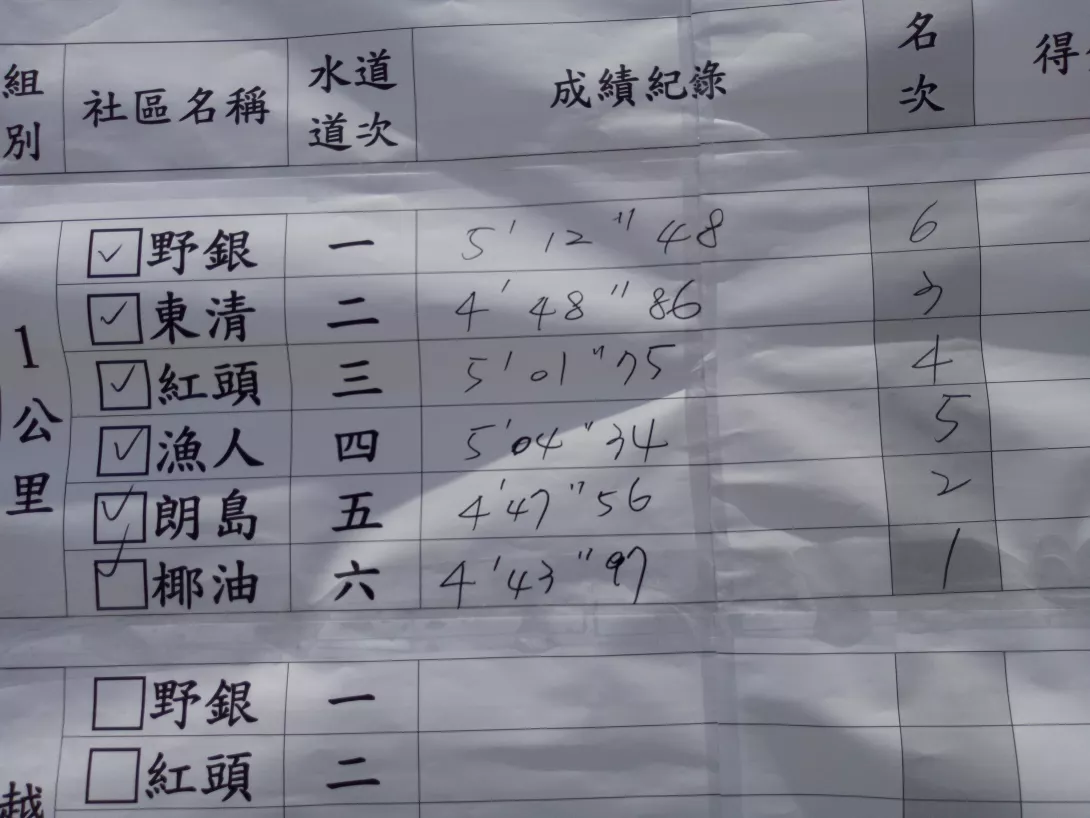 組別 社區名稱 水道道次 成績紀錄 名次 得
1公里
野銀 一 5'12"48 6
東清 二 4'48"86 3
紅頭 三 5'01"75 4
漁人 四 5'04"34 5
朗島 五 4'47"56 2
椰油 六 4'43"97 1
越
野銀 一
紅頭 二